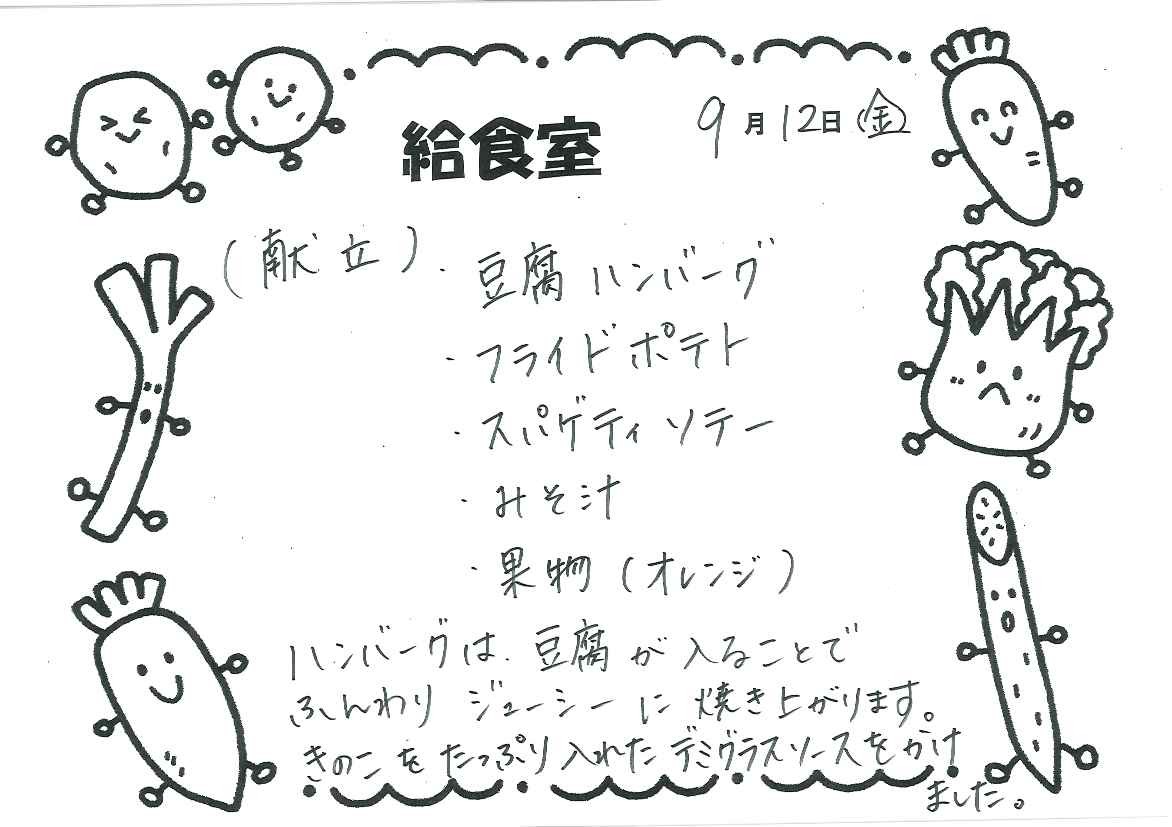 給食室
9月12日(金)
(献立)・豆腐ハンバーグ
・フライドポテト
・スパゲティソテー
・みそ汁
・果物(オレンジ)
ハンバーグは、豆腐が入ることで
ふんわりジューシーに焼き上がります。
きのこをたっぷり入れたデミグラスソースをかけ
ました。